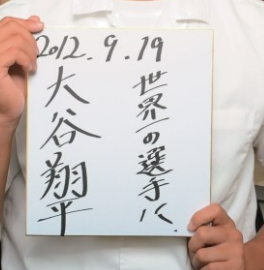 2012.9.19
世界一の選手に.
大谷翔平